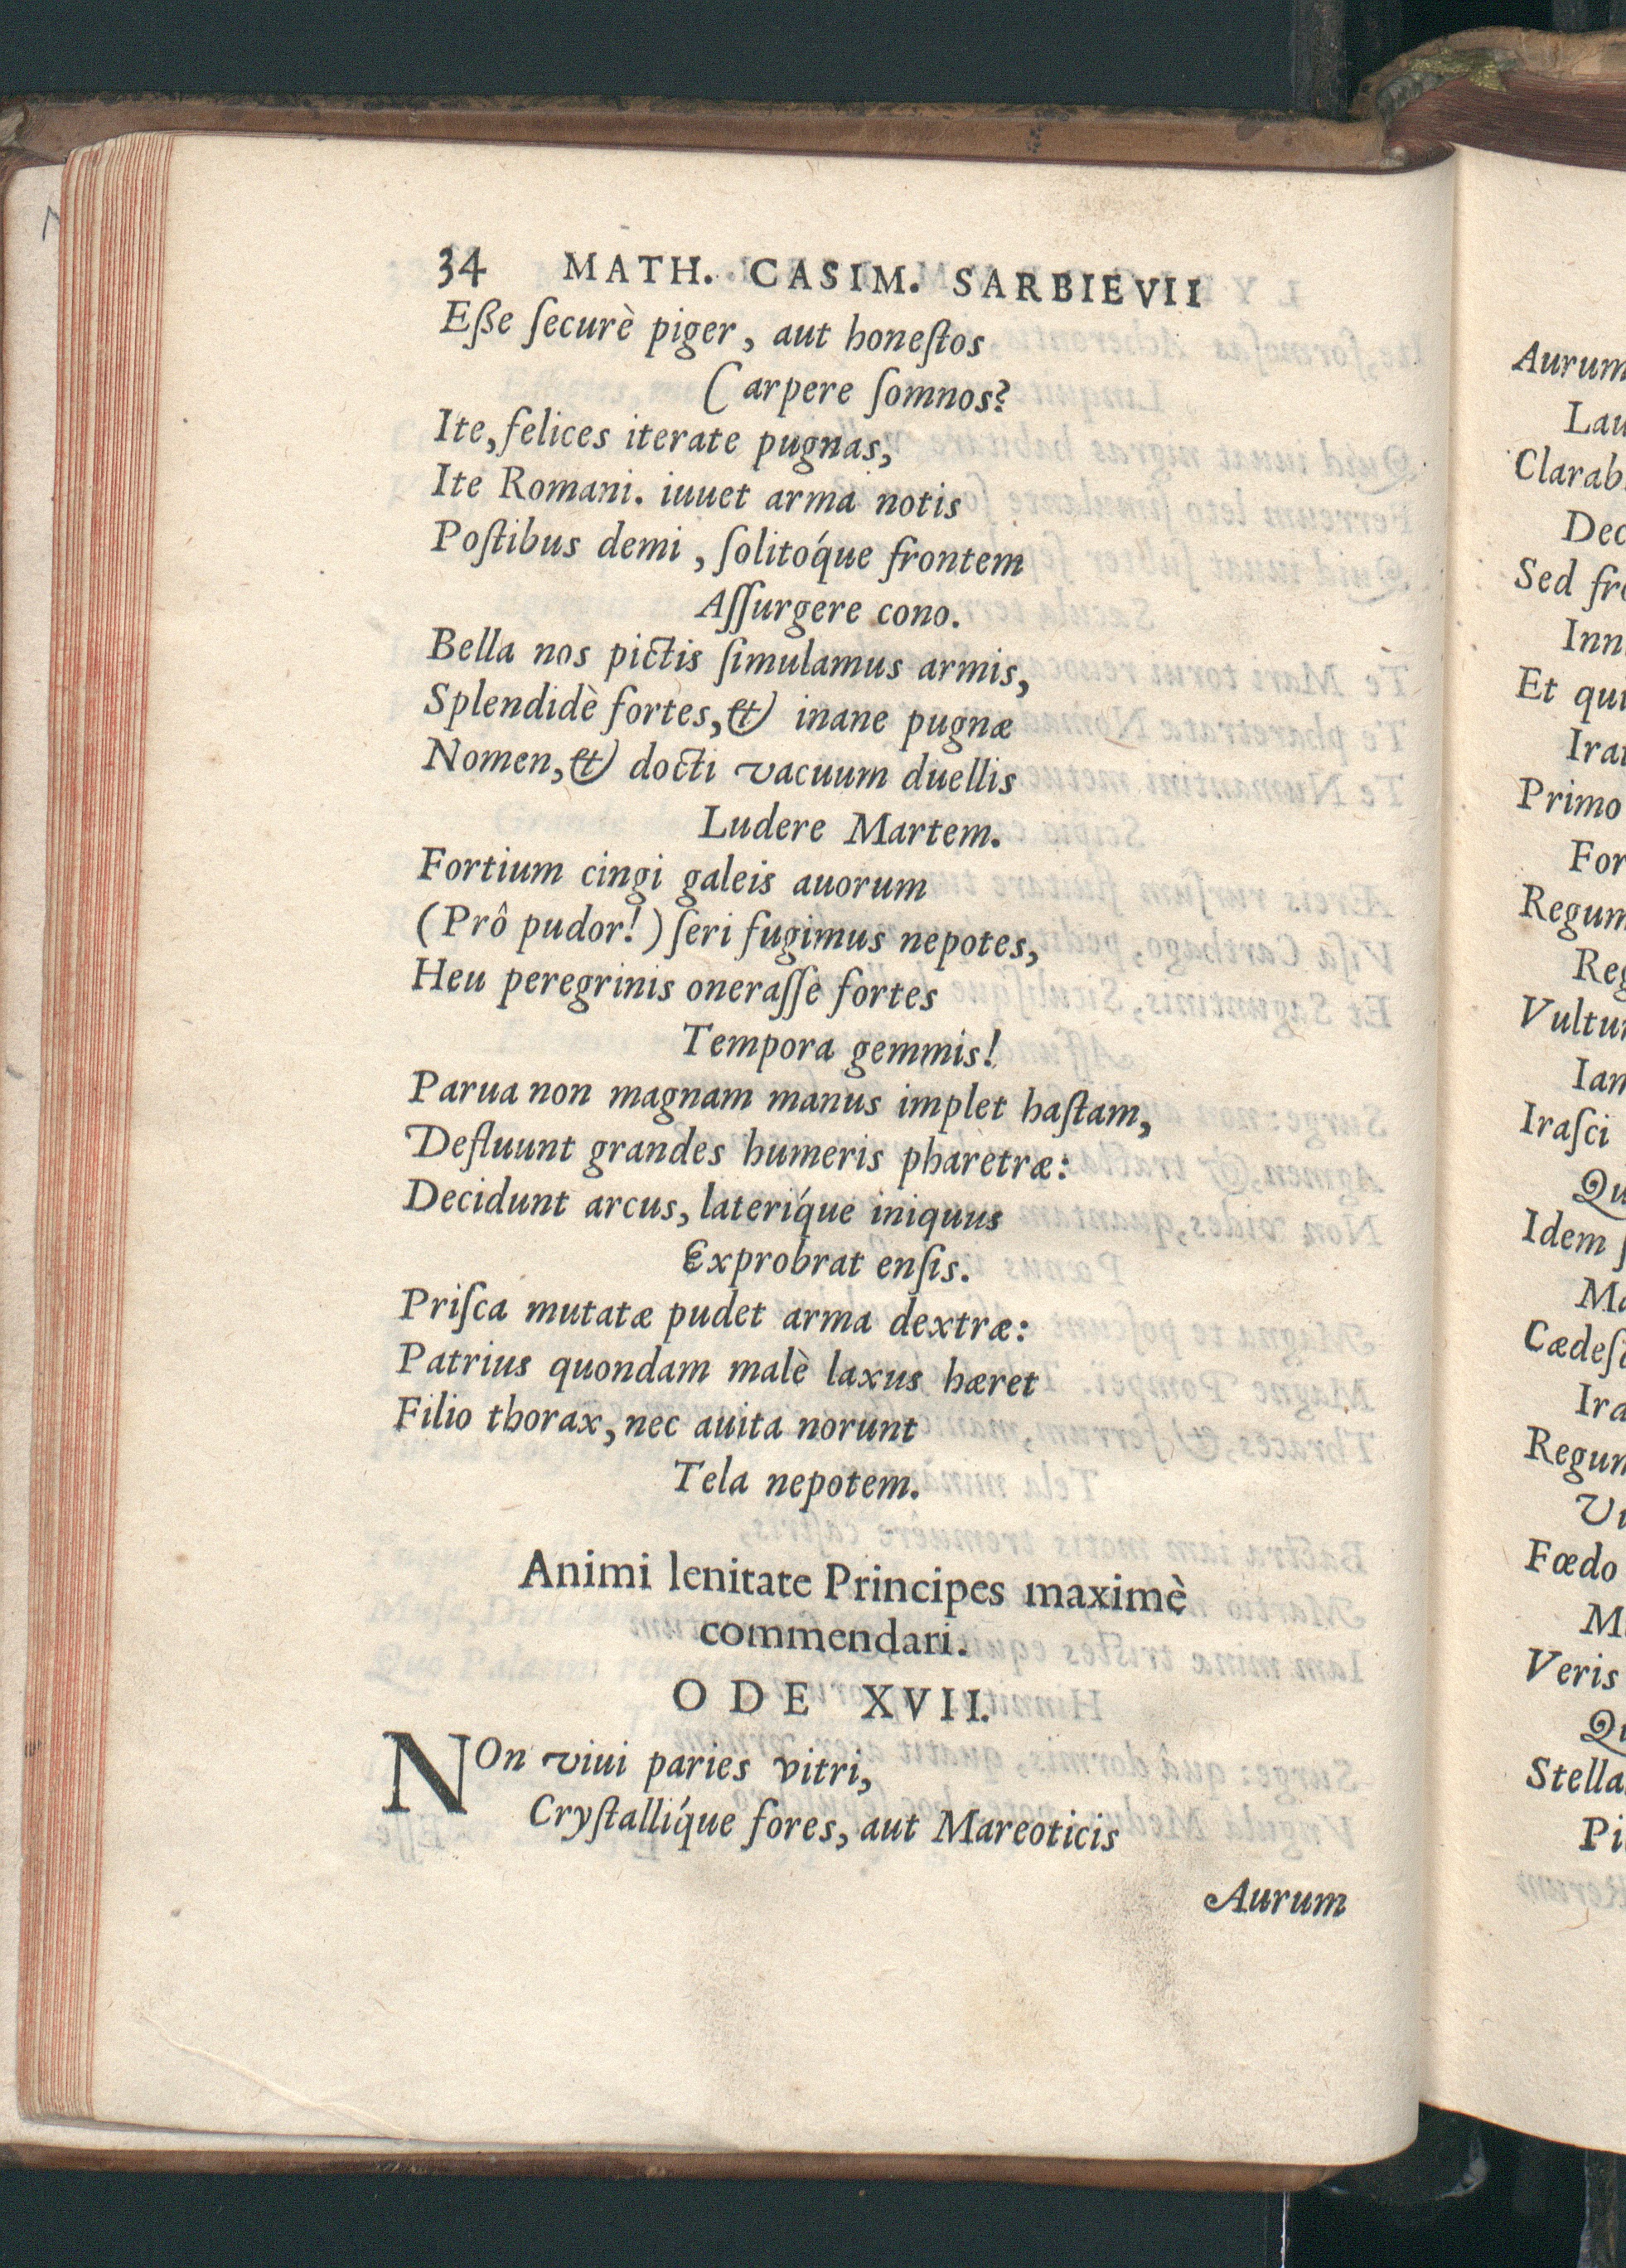 34 MATH. CASIM. SARBIEVII
Eße ſecurè piger, aut honeſtos
Carpere ſomnos?
Ite, felices iterate pugnas,
Ite Romani. iuuet arma notis
Poſtibus demi, ſolitóque frontem
Aſſurgere cono.
Bella nos pictis ſimulamus armis,
Splendidè fortes, & inane pugnæ
Nomen, & docti vacuum duellis
Ludere Martem.
Fortium cingi galeis auorum
(Prô pudor!) ſeri fugimus nepotes,
Heu peregrinis oneraſſe fortes
Tempora gemmis!
Parua non magnam manus implet haſtam,
Defluunt grandes humeris pharetræ:
Decidunt arcus, lateríque iniquus
Exprobrat enſis.
Priſca mutatæ pudet arma dextræ:
Patrius quondam malè laxus hæret
Filio thorax, nec auita norunt
Tela nepotem.
Animi lenitate Principes maximè
commendari.
ODE XVII.
NOn viui paries vitri,
Cryſtallíque fores, aut Mareoticis
Aurum
Aurum
Sed
Et
Primo
Iraſci
Idem
Fœdo
Veris